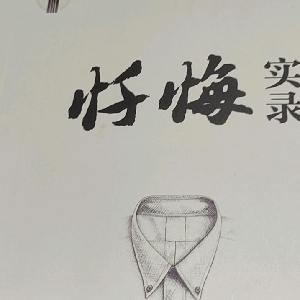 忏悔
实录